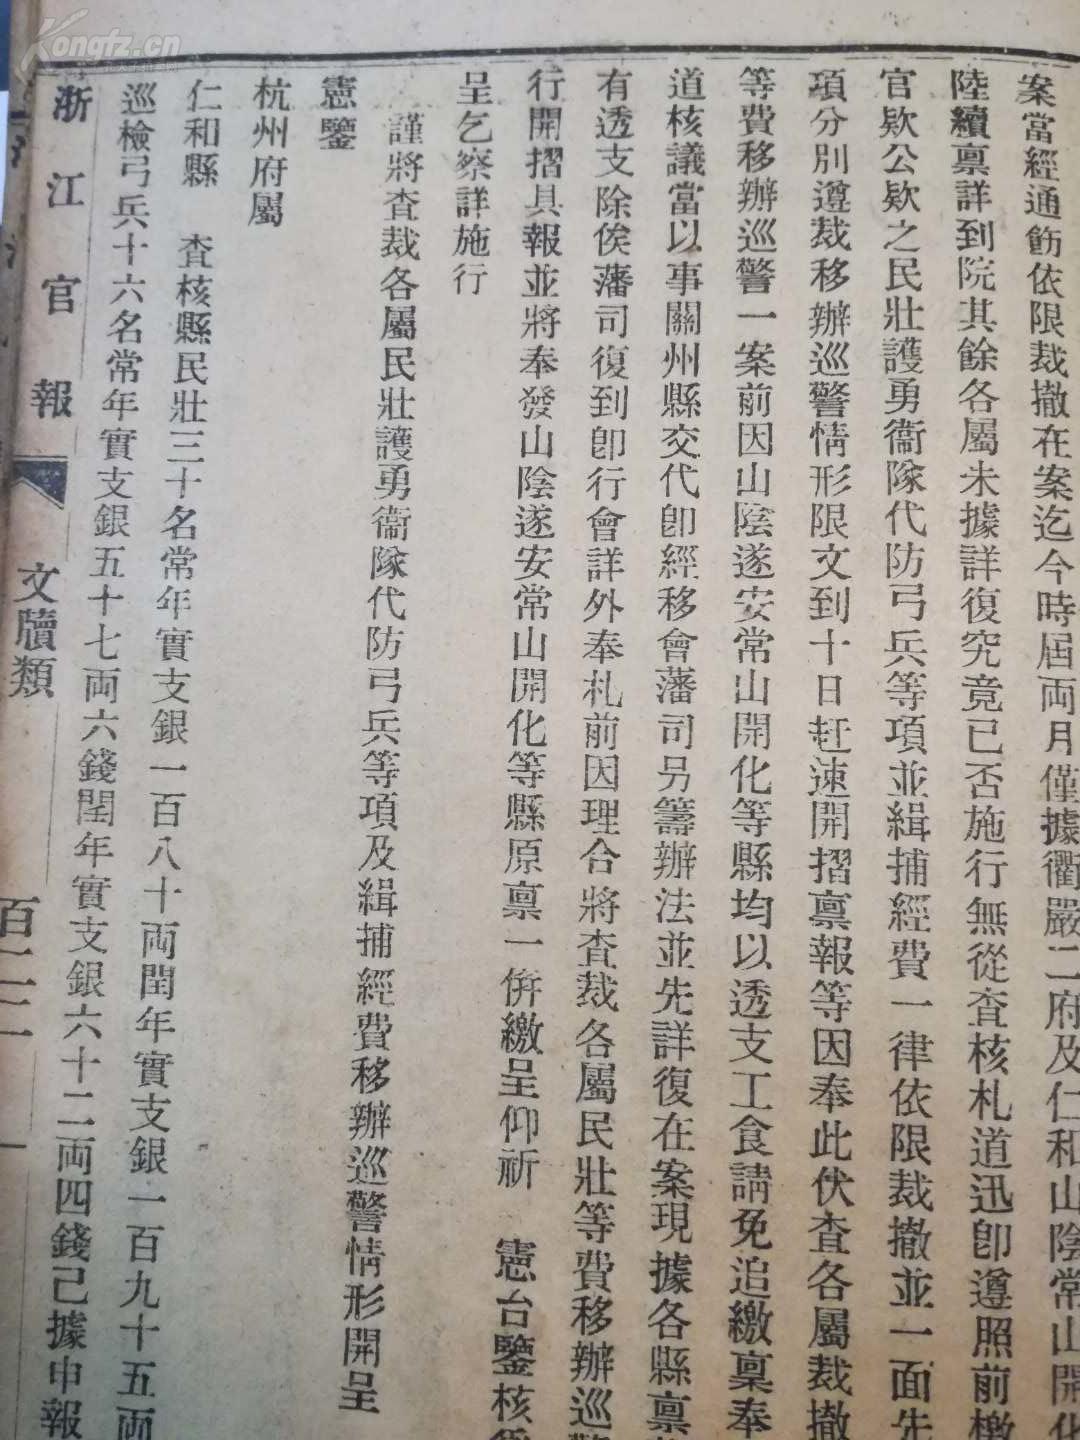 案當經通飭依限裁撤在案迄今時屆両月僅據衢嚴二府及仁和山陰常山開化
陸續稟詳到院其餘各屬未據詳復究竟已否施行無從查核札道迅卽遵照前檄
官欵公欵之民壯護勇衞隊代防弓兵等項並緝捕經費一律依限裁撤並一面先
項分別遵裁移辦巡警情形限文到十日赶速開摺稟報等因奉此伏查各屬裁撤
等費移辦巡警一案前因山陰遂安常山開化等縣均以透支工食請免追繳稟奉
道核議當以事關州縣交代卽經移會藩司另籌辦法並先詳復在案現據各縣稟
有透支除俟藩司復到卽行會詳外奉札前因理合將查裁各屬民壯等費移辦巡警
行開摺具報並將奉發山陰遂安常山開化等縣原稟一倂繳呈仰祈 憲台鑒核
呈乞察詳施行
謹將查裁各屬民壯護勇衞隊代防弓兵等項及緝捕經費移辦巡警情形開呈
憲鑒
杭州府屬
仁和縣 查核縣民壯三十名常年實支銀一百八十両閏年實支銀一百九十五両
巡檢弓兵十六名常年實支銀五十七両六錢閏年實支銀六十二両四錢已據申報
浙江官報 文牘類
Kongfz.cn